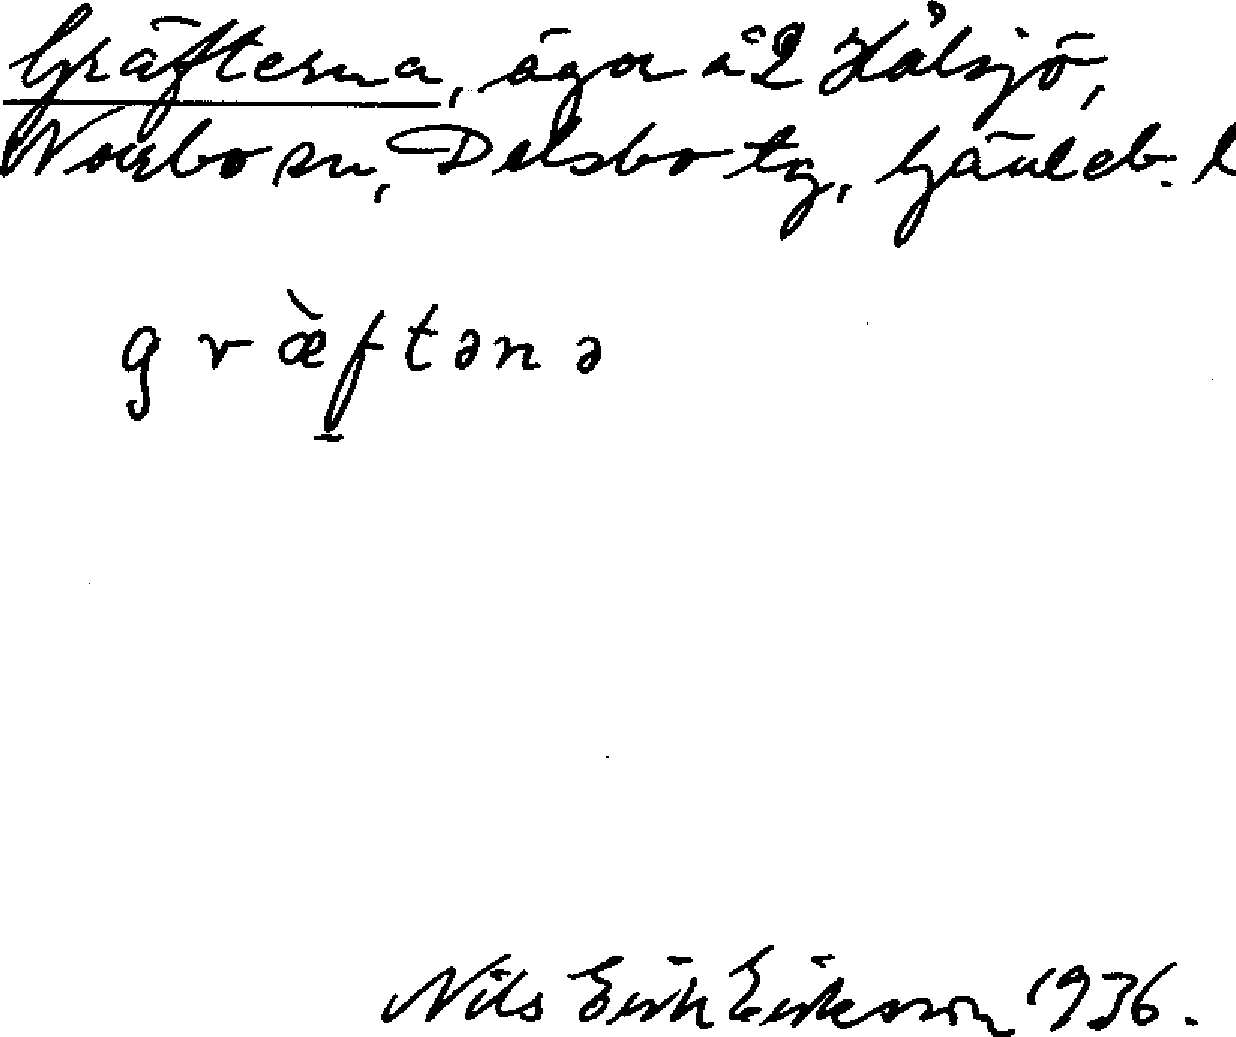 Gräfterna, äga å 2 Hålsjö,
Norrbo sn, Delsbo tg, Gävleb. l
græ̀ftənə
Nils Erik Eriksson 1936.